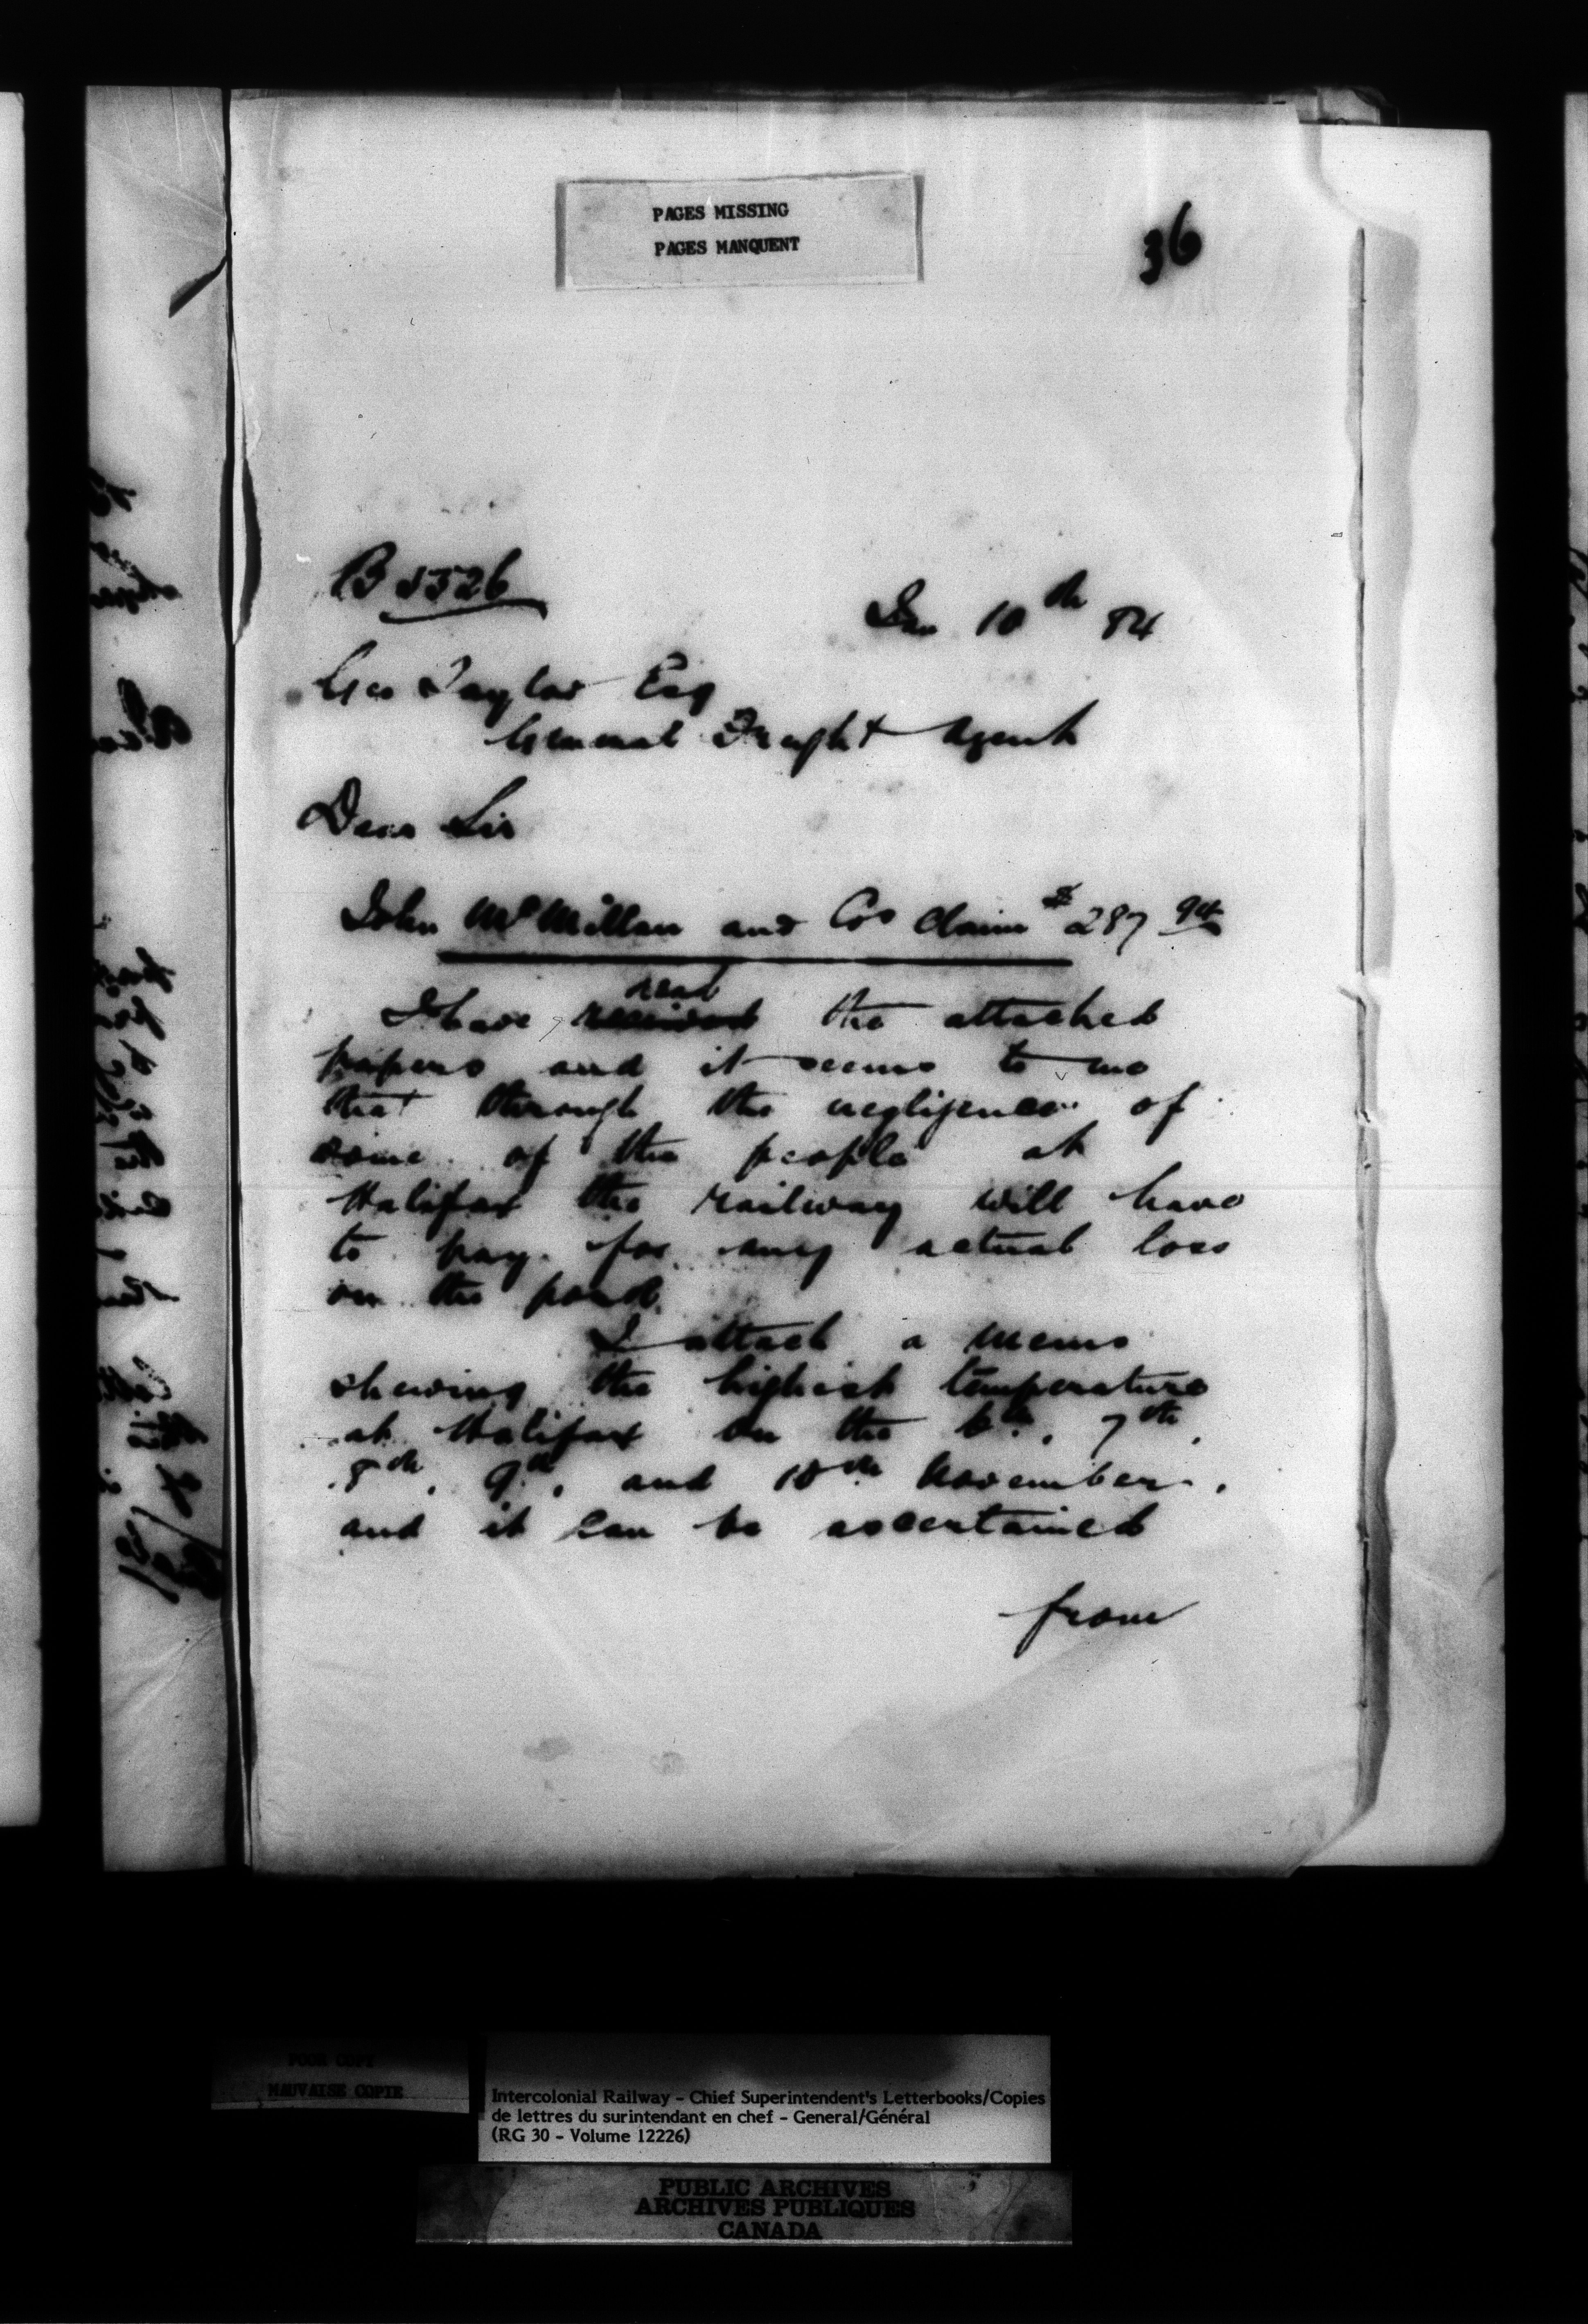 PAGES MISSING
PAGES MANQUENT
36
B 5526
Jan 10th 84
Geo Taylor Esq
General Freight Agent
Dear Sir
John McMillan and Cos Claim $287 94
I have read the attached
papers and it seems to me
that through the negligence of
some of the people at
Halifax the railway will have
to pay for any actual loss
on the
I attach a memo
shewing the highest temperature
at Halifax on the 6th, 7th,
8th, 9th, and 10th November,
and it can be ascertained
from
POOR COPY
MAUVAISE COPIE
Intercolonial Railway - Chief Superintendent's Letterbooks/Copies
de lettres du surintendant en chef - General/Général
(RG 30 - Volume 12226)
PUBLIC ARCHIVES
ARCHIVES PUBLIQUES
CANADA